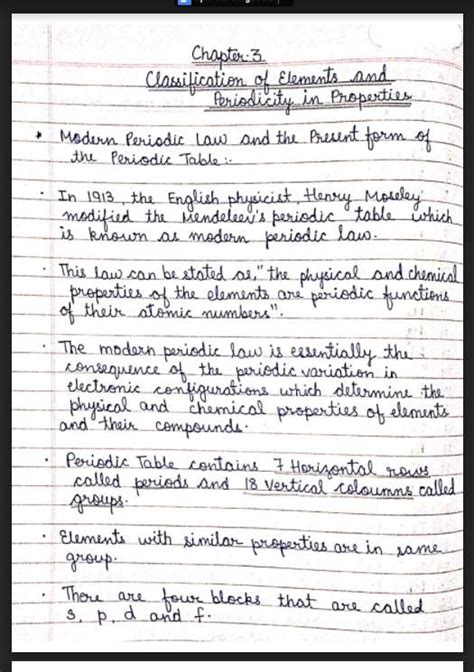 Chapter-3
Classification of Elements and
Periodicity in Properties
* Modern Periodic Law and the Present form of
the Periodic Table :-
· In 1913, the English physicist, Henry Moseley
modified the Mendeleev's periodic table which
is known as modern periodic law.
· This law can be stated as, "the physical and chemical
properties of the elements are periodic functions
of their atomic numbers".
· The modern periodic law is essentially the
consequence of the periodic variation in
electronic configurations which determine the
physical and chemical properties of elements
and their compounds.
· Periodic Table contains 7 Horizontal rows
called periods and 18 Vertical coloumns called
groups.
· Elements with similar properties are in same
group.
· There are four blocks that are called
s, p, d and f.